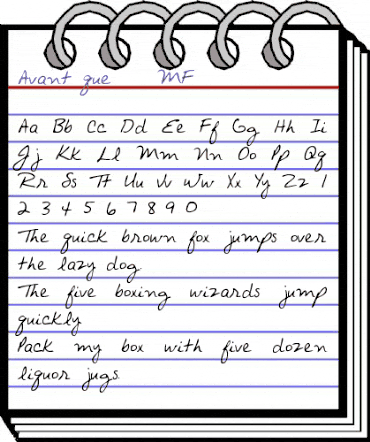 Avant que MF
Aa Bb Cc Dd Ee Ff Gg Hh Ii
Jj Kk Ll Mm Nn Oo Pp Qq
Rr Ss Tt Uu Vv Ww Xx Yy Zz 1
2 3 4 5 6 7 8 9 0
The quick brown fox jumps over
the lazy dog
The five boxing wizards jump
quickly
Pack my box with five dozen
liquor jugs